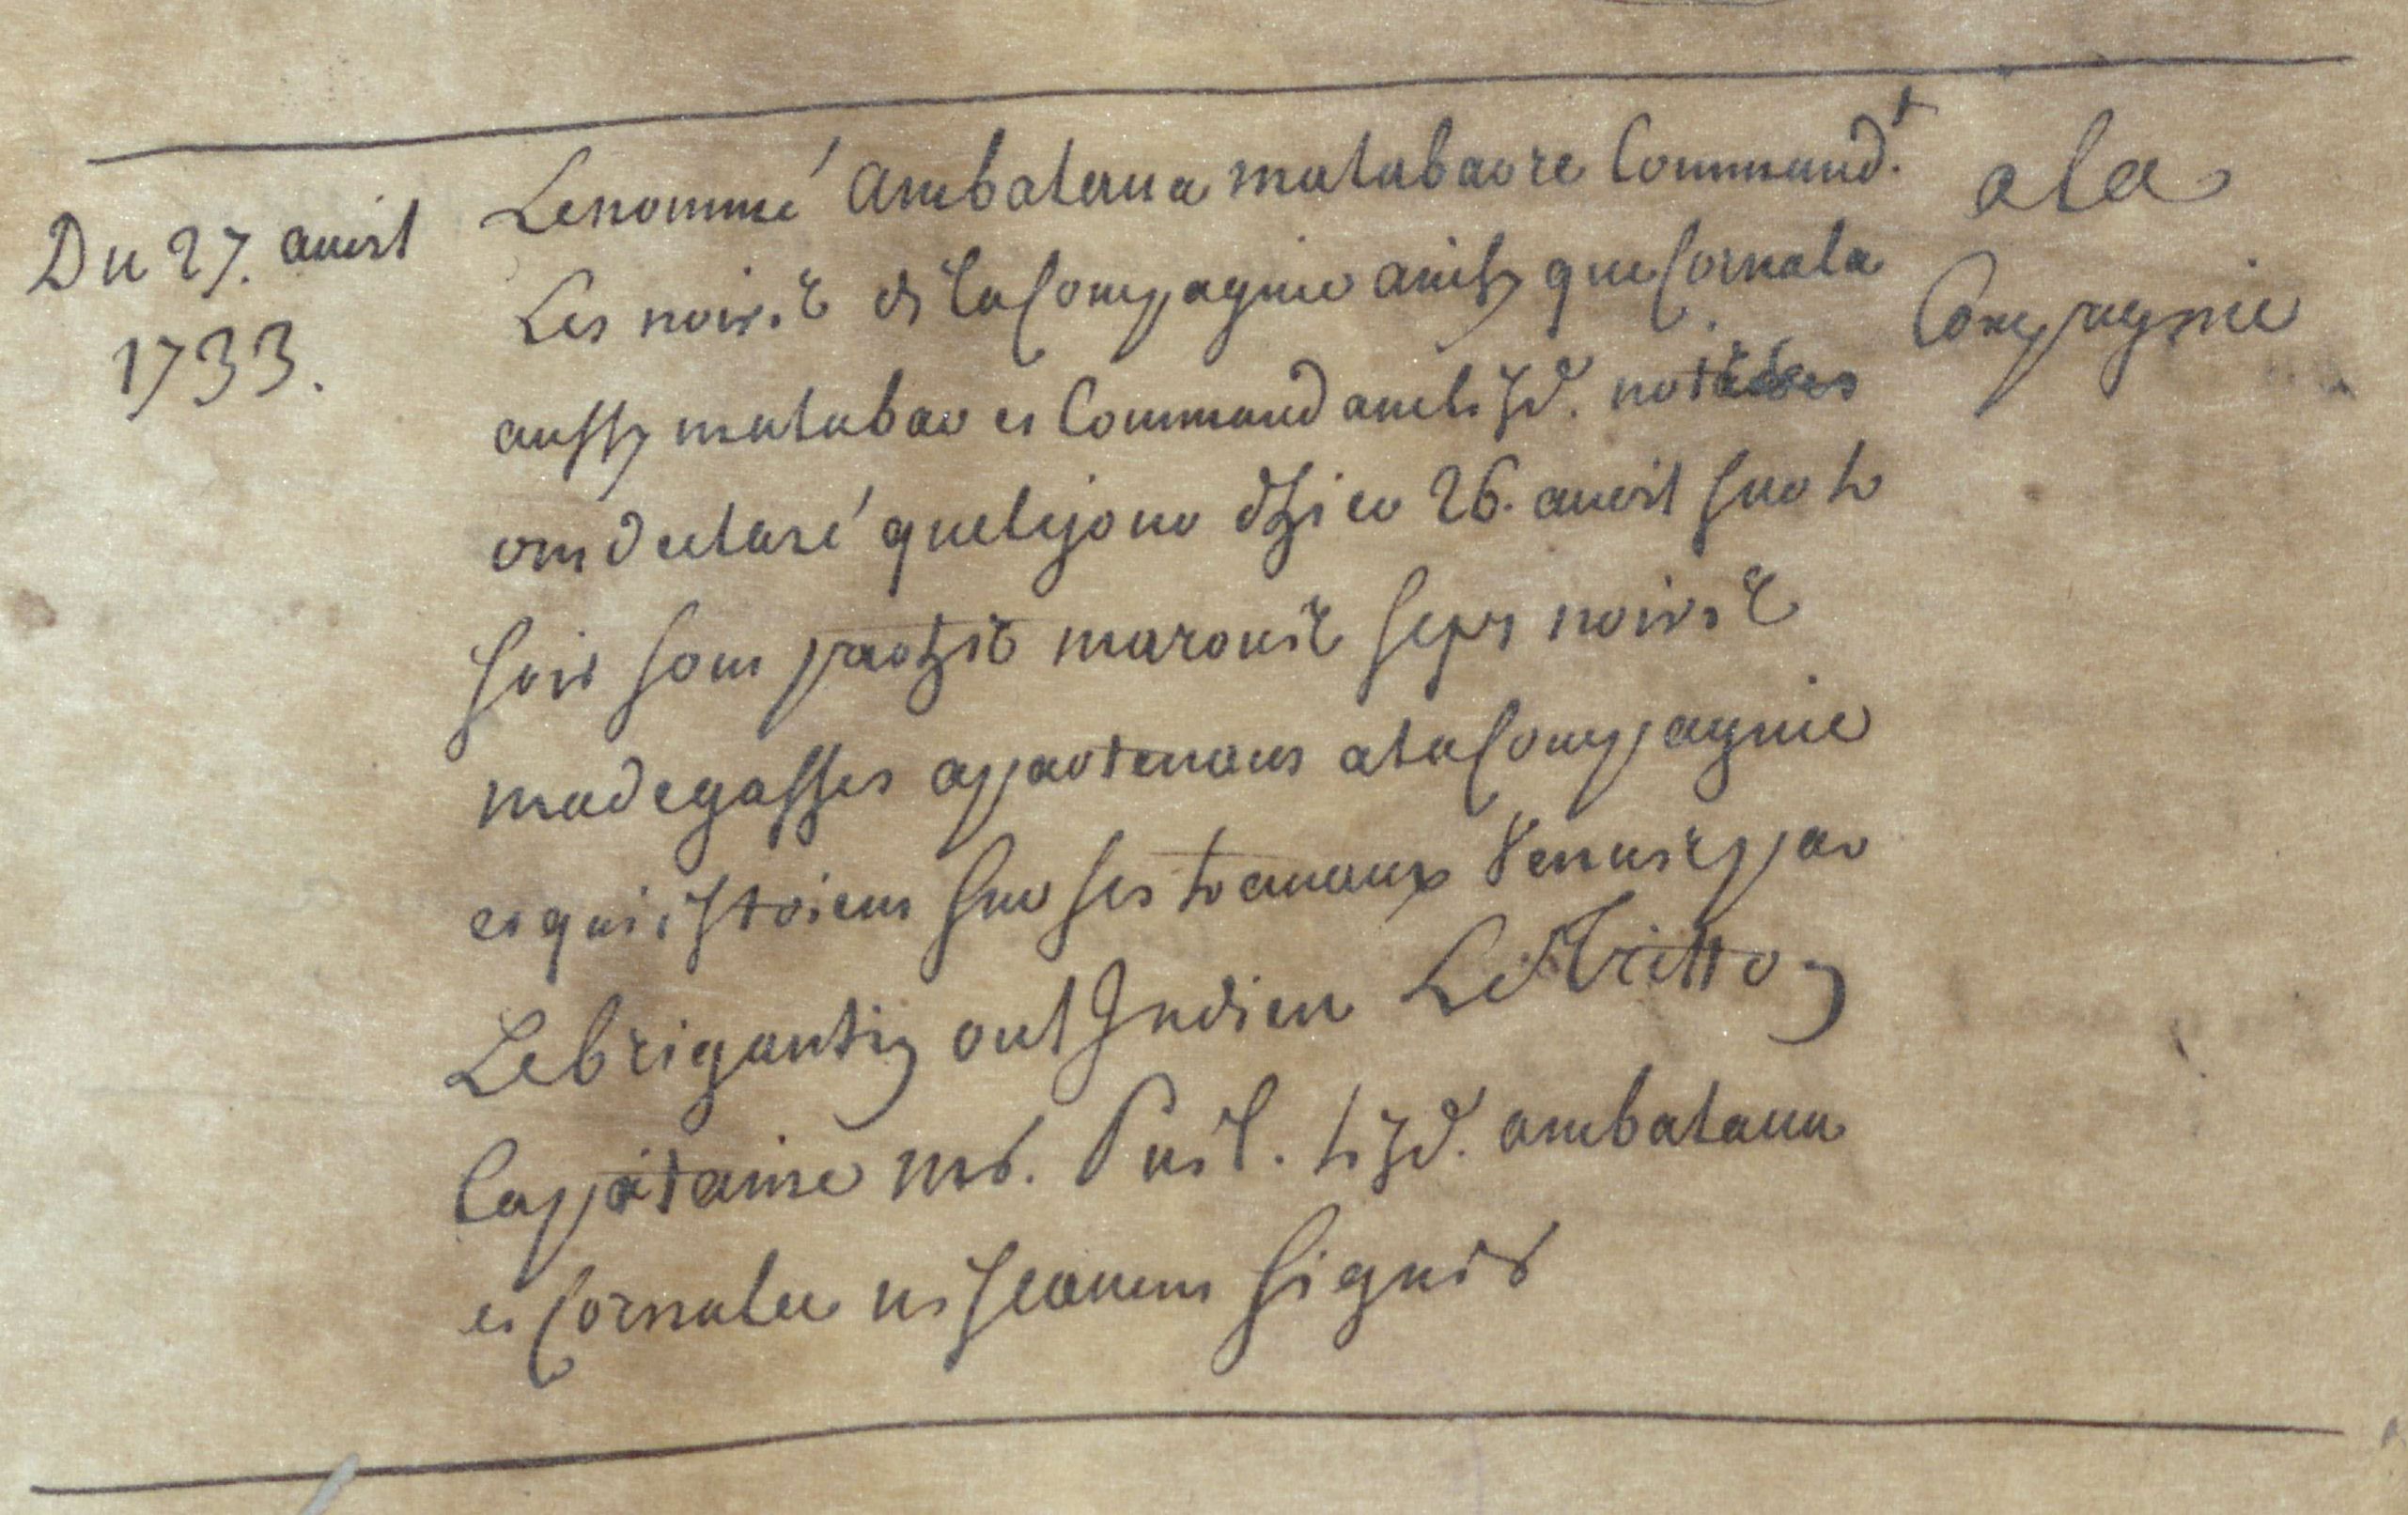 Du 27. avril
1733.
Le nommé Ambatana malabarre Command.t
Les noirs de la Compagnie ainsy que Cornala
aussy malabar et Command
ont declaré que le jour d'hier 26. avril sur le
soir sont partis marons sept noirs
madegasses appartenans a la Compagnie
et qui estoient sur ses travaux venus par
Le brigantin Indien Le
Capitaine mr. led. ambatana
et Cornalee ne scavent signer
a la
Compagnie